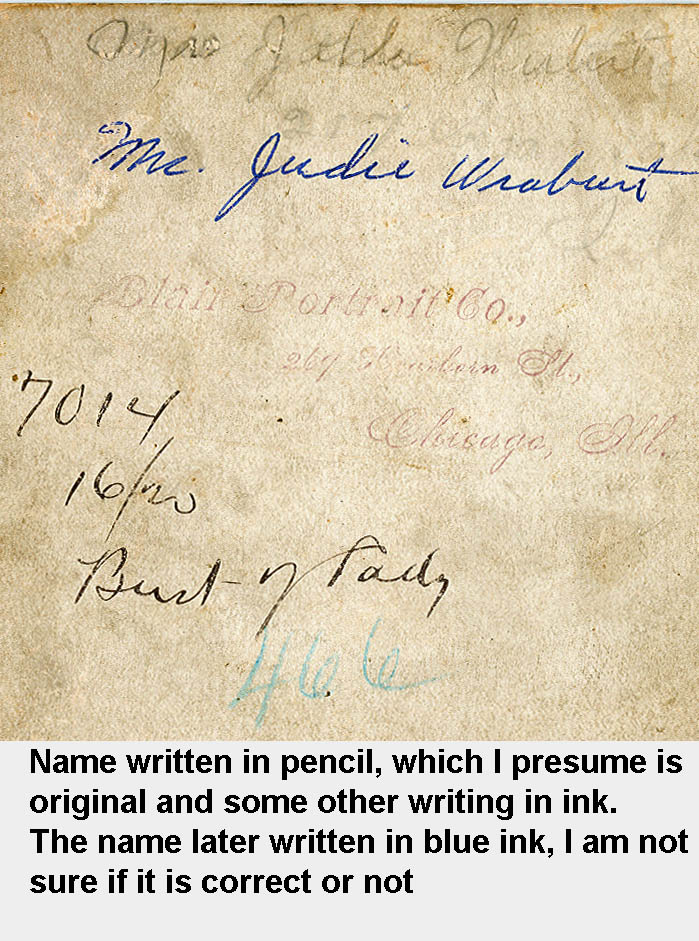 Mrs
Judie
Blair Portrait Co.,
St.,
Chicago, Ill.
7014
16/20
Bust of Lady
466
Name written in pencil, which I presume is
original and some other writing in ink.
The name later written in blue ink, I am not
sure if it is correct or not